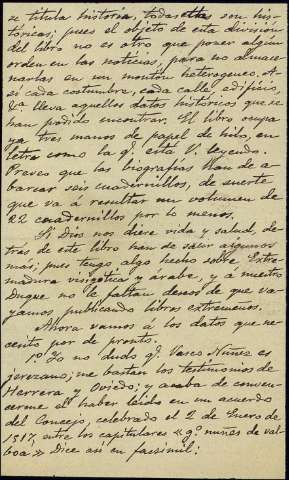 se titula historia, todas ellas son his-
tóricas; pues el objeto de esta division
del libro no es otro que poner algun
orden en las noticias, para no almace-
narlas en un monton heterogeneo. A-
sí cada costumbre, cada calle, edificio,
&ª lleva aquellos datos históricos que se
han podido encontrar. El libro ocupa
ya tres manos de papel de hilo, en
letra como la q.e está V. leyendo.
Preveo que las biografias han de a-
barcar seis cuadernillos, de suerte
que va á resultar un volumen de
22 cuadernillos por lo menos.
Si Dios nos diere vida y salud, de-
trás de este libro han de salir algunos
más; pues tengo algo hecho sobre Extre-
madura visigótica y árabe, y á nuestro
Duque no le faltan deseos de que va-
yamos publicando libros extremeños.
Ahora vamos á los datos que ne-
cesito por de pronto.
1º Yo no dudo q.e Vasco Nuñez es
jerezano; me bastan los testimonios de
Herrera y Oviedo; y acaba de conven-
cerme el haber leido en un acuerdo
del Concejo, celebrado el 2 de Enero de
1517, entre los capitulares «gº nuñes de val-
boa» Dice así en facsímil: